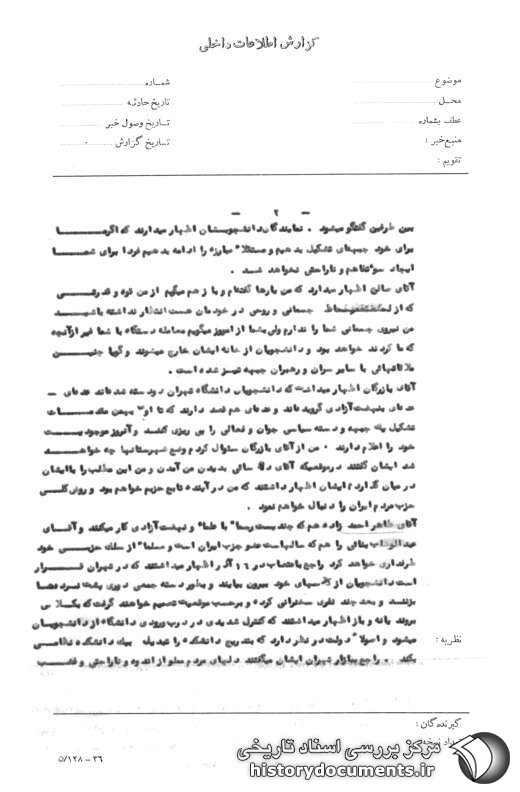 گزارش اطلاعات داخلی
موضوع
شماره
محل
تاریخ حادثه
عطف بشماره
تاریخ وصول خبر
منبع خبر :
تاریخ گزارش
تقویم :
— ۲ —
بین طرفین گفتگو میشود . نمایندگان دانشجویان اظهار میدارند که اگر ما
برای خود جبهه‌ای تشکیل بدهیم و مستقلا مبارزه را ادامه بدهیم فردا برای شما
ایجاد سوءتفاهم و ناراحتی نخواهد شد .
آقای صالح اظهار میدارد که من بارها گفته‌ام و باز هم میگویم از من قوه و قدرتی
که از لحاظ جسمانی و روحی در خودمان هست انتظار نداشته باشید
من نیروی جسمانی شما را ندارم ولی بشما از امروز میگویم معامله دستگاه با شما غیر از آنچه
که با ما کردند خواهد بود و دانشجویان از خانه ایشان خارج میشوند و گویا چنین
ملاقاتهائی با سایر سران و رهبران جبهه نیز شده است .
آقای بازرگان اظهار میداشت که دانشجویان دانشگاه تهران دو دسته شده‌اند عده‌ای —
عده‌ای بنهضت آزادی گرویده‌اند و عده‌ای هم قصد دارند که تا او بهمن مقدمات
تشکیل یک جبهه و دسته سیاسی جوان و فعالی را پی ریزی کنند و آنروز موجودیت
خود را اعلام دارند . من از آقای بازرگان سئوال کردم وضع شهرستانها چه خواهد
شد ایشان گفتند در موقعیکه آقای سالی بدیدن من آمدن و من این مطلب را با ایشان
در میان گذاردم ایشان اظهار داشتند که من در آینده تابع حزبم خواهم بود و روش کلی
حزب مردم ایران را دنبال خواهم نمود .
آقای طاهر احمدزاده هم که چند بیست رسما با علما و نهضت آزادی کار میکنند و آقای
عبدالوهاب بقائی را هم که سالهاست عضو حزب ایران است و مسلما از مسلک حزبی خود
طرفداری خواهد کرد راجع باعتصاب در ۱۶ آذر اظهار میداشتند که در تهران قرار
است دانشجویان از کلاسهای خود بیرون بیایند و بطور دسته جمعی دوری پشت نرده‌ها
بزنند و بعد چند نفری سخنرانی کرده و برحسب موقعیت تصمیم خواهند گرفت که بکلاس
بروند یا نه و باز اظهار میداشتند که کنترل شدیدی در درب ورودی دانشگاه از دانشجویان
میشود و اصولا دولت در نظر دارد که بتدریج دانشکده را تبدیل بیک دانشکده نظامی
بکند . راجع ببازار تهران ایشان میگفتند دلهای مردم مملو از اندوه و ناراحتی و غضب
نظریه :
گیرندگان :
۳۶ – ۵/۱۲۸
مرکز بررسی اسناد تاریخی
historydocuments.ir